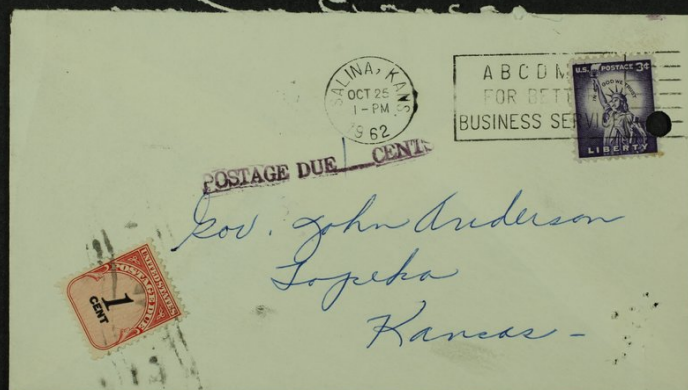 SALINA, KANS.
OCT 25
1-PM
1962
A B C D M
FOR BETT
BUSINESS SERVI
U.S. POSTAGE 3¢
IN GOD WE TRUST
LIBERTY
POSTAGE DUE 1 CENTS
Gov. John Anderson
Topeka
Kansas -
UNITED STATES
POSTAGE DUE
1
CENT